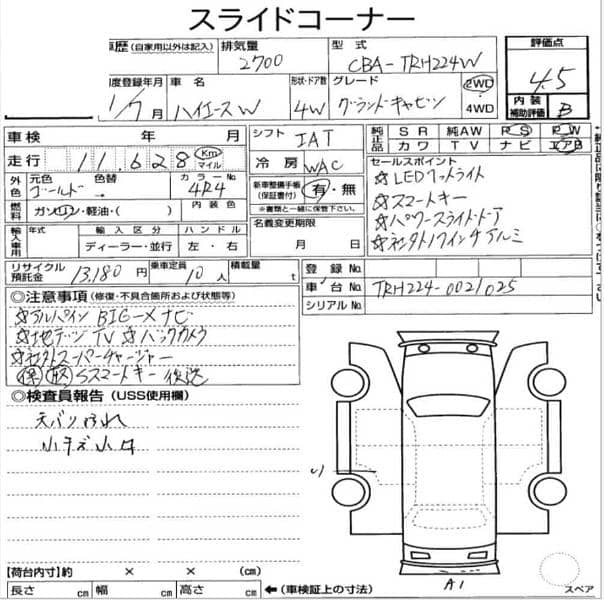 スライドコーナー
歴 (自家用以外は記入) 排気量 2700 型式 CBA-TRH224W 評価点 4.5
度登録年月 1/7月 車名 ハイエースW 形状・ドア数 4W グレード グランドキャビン 2WD 4WD 内装補助評価 B
車検 年 月 シフト IAT 純正品 SR 純AW PS PW
カワ TV ナビ エアB
走行 11,628 km マイル 冷房 WAC セールスポイント
外色 元色 ゴールド 色替 → カラーNo. 4R4 新車整備手帳(保証書付) 有・無 ☆LEDヘッドライト
※書類と一緒に保管下さい。 ☆スマートキー
燃料 ガソリン・軽油・( ) 内装色 名義変更期限 ☆パワースライドドア
輸入車用 年式 輸入区分 ハンドル ☆社外17インチアルミ
ディーラー・並行 左・右 月 日
リサイクル預託金 13,180円 乗車定員 10人 積載量 t 登録No.
車台No. TRH224-0021025
シリアルNo.
◎注意事項 (修復・不具合箇所および状態等)
☆アルパイン BIG-Xナビ
☆地デジTV ☆バックカメラ
☆社外スーパーチャージャー
保 取 Sスマートキー 後送
◎検査員報告 (USS使用欄)
天バリ汚れ
小キズ小凹
【荷台内寸】約 × × (cm)
長さ cm 幅 cm 高さ cm ←(車検証上の寸法)
A1
スペア